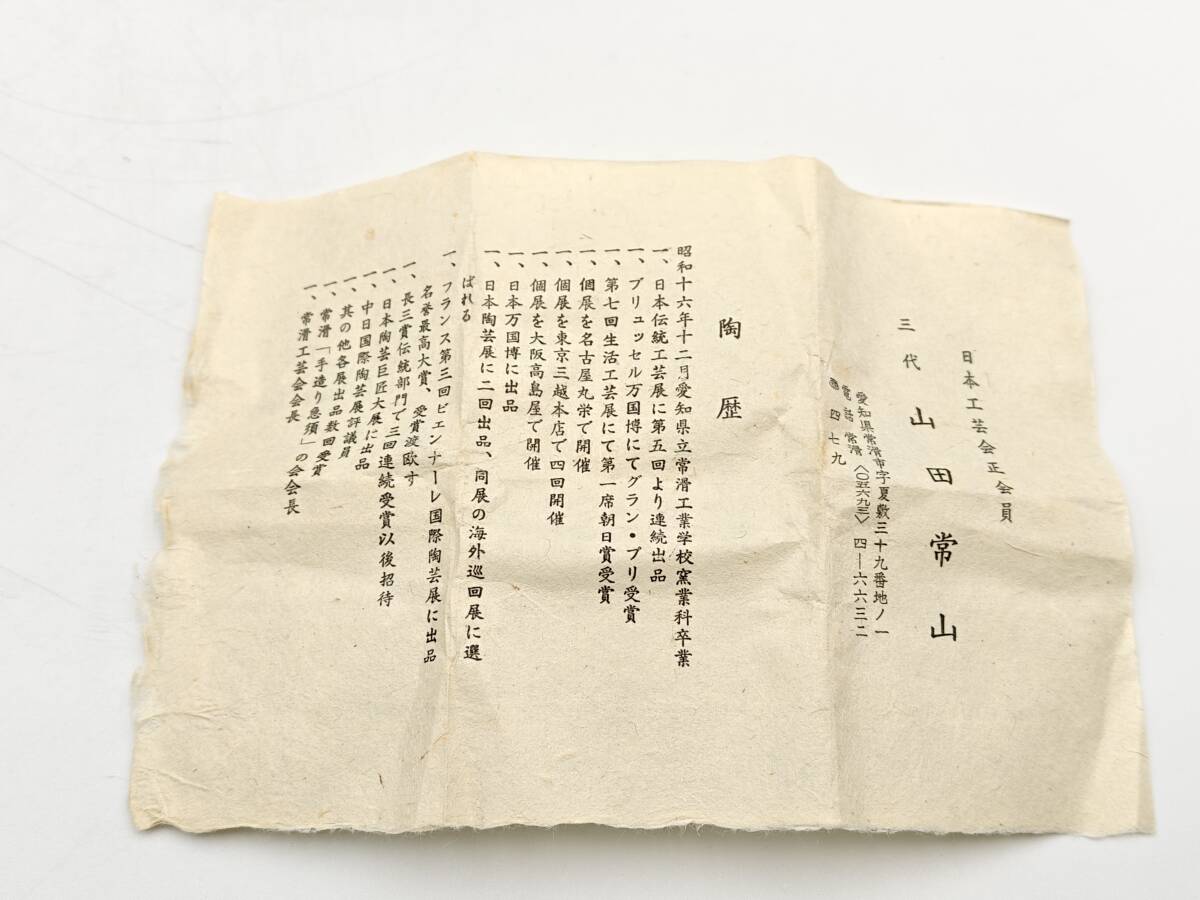 日本工芸会正会員
三代 山田常山
愛知県常滑市字夏敷三十九番地ノ一
電話 常滑〈〇五六九三〉四―六六三二
〒四七九
陶歴
昭和十六年十二月愛知県立常滑工業学校窯業科卒業
一、日本伝統工芸展に第五回より連続出品
一、ブリュッセル万国博にてグラン・プリ受賞
一、第七回生活工芸展にて第一席朝日賞受賞
一、個展を名古屋丸栄で開催
一、個展を東京三越本店で四回開催
一、個展を大阪高島屋で開催
一、日本万国博に出品
一、日本陶芸展に二回出品、同展の海外巡回展に選
ばれる
一、フランス第三回ビエンナーレ国際陶芸展に出品
名誉最高大賞、受賞渡欧す
一、長三賞伝統部門で三回連続受賞以後招待
一、日本陶芸巨匠大展に出品
一、中日国際陶芸展評議員
一、其の他各展出品数回受賞
一、常滑「手造り急須」の会会長
一、常滑工芸会会長